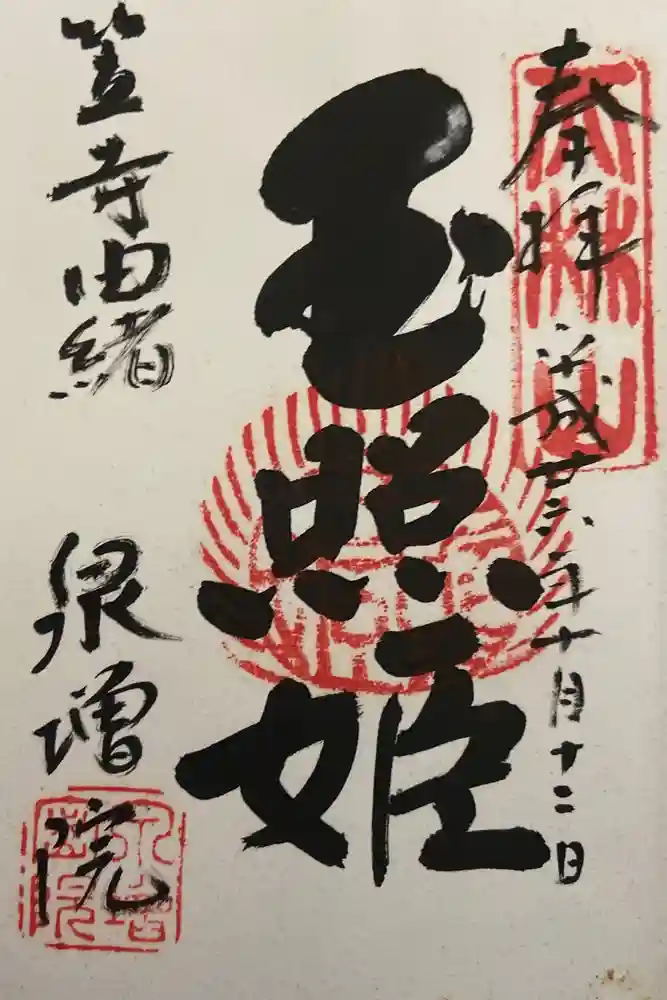 奉拝 平成廿六年十月十二日
天林山
玉照姫
笠寺由緒
泉増院